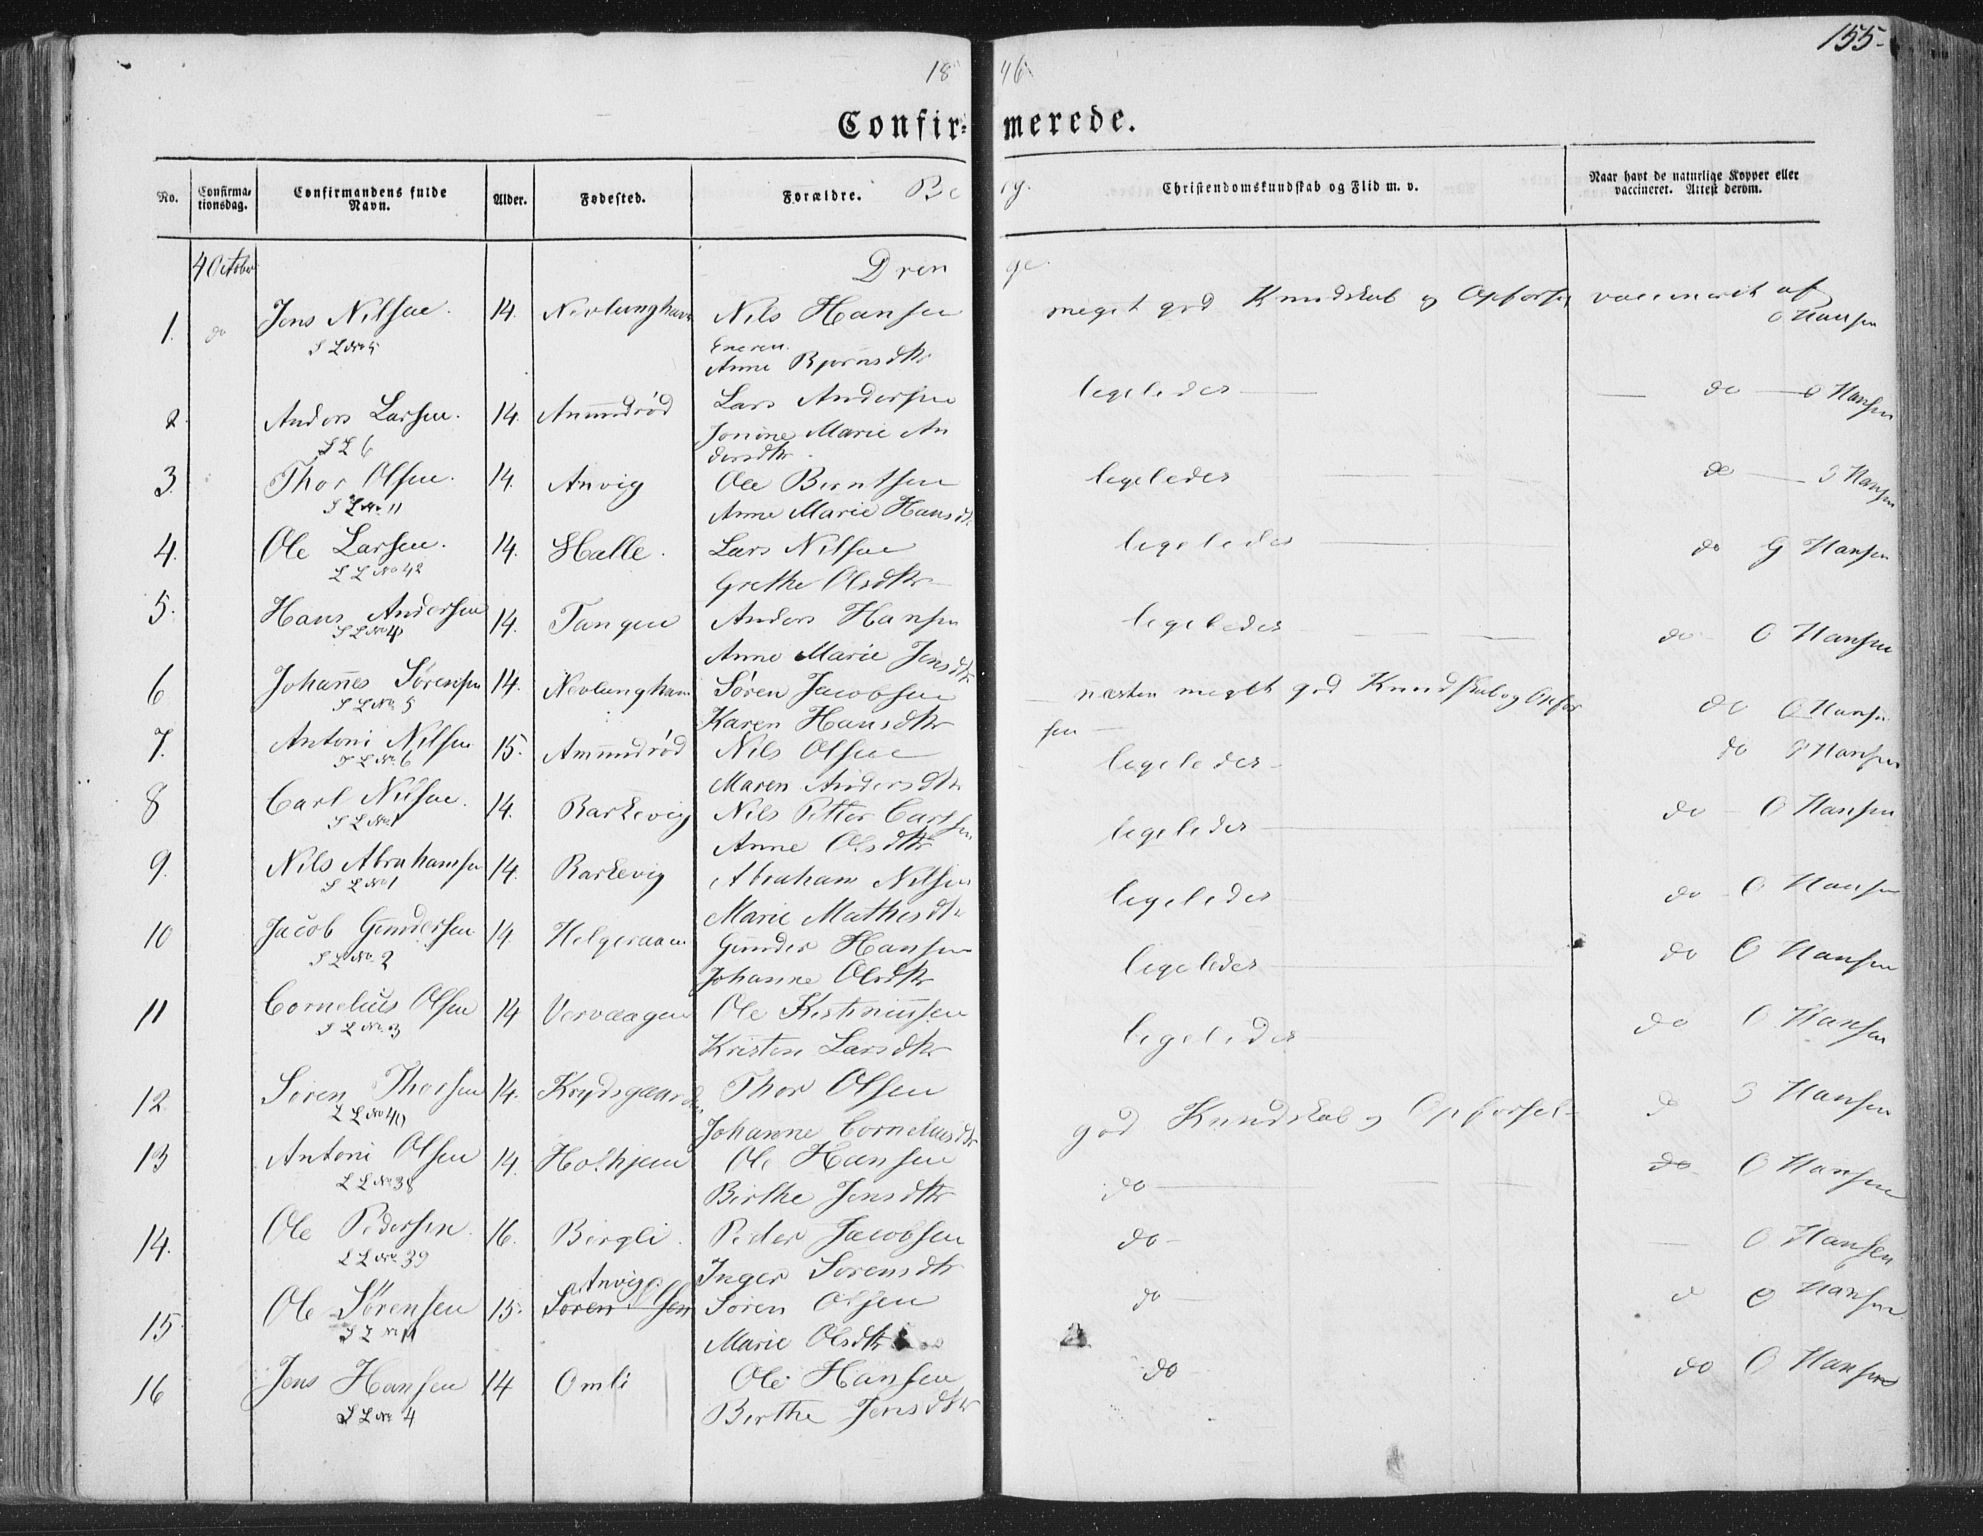 155.
18 46
Confir= merede.
No.
Confirma-
tionsdag.
Confirmandens fulde
Navn.
Alder.
Fødested.
Forældre.
Christendomskundskab og Flid m. v.
Naar havt de naturlige Kopper eller
vaccineret. Attest derom.
Be rg.
4 October
Dren ge
1. do Jens Nilsen. 14. Nevlunghavn Nils Hansen meget god Kundskab og Opførsel vaccineret af
O Hansen
S L No 5
Anne Bjørnsdtr
2. Anders Larsen. 14. Anundrød Lars Andersen legeledes do O Hansen
S L 6 Jonine Marie An
dersdtr.
3. Thor Olsen. 14. Anvig Ole Berntsen legeledes do Hansen
S L No. 11 Anne Marie Hansdtr
4. Ole Larsen. 14. Halle. Lars Nilsen legeledes do G Hansen
L L No 42 Grethe Olsdtr
5. Hans Andersen 14. Tangen Anders Hansen legeledes do O Hansen
S L No 4 Anne Marie Jensdtr
6 Johannes Sørensen 14. Nevlunghavn Søren Jacobsen næsten meget god Kundskab og Opfør
sen do O Hansen
S L No. 5 Karen Hansdtr
7. Antoni Nilsen 15. Amundrød Nils Olsen legeledes do Hansen
S L No. 6 Maren Andersdtr
8 Carl Nilsen. 14. Barkevig Nils Petter Carlsen legeledes do O Hansen
S L No 1 Anne Olsdtr
9. Nils Abrahamsen 14. Barkevig Abraham Nilsen legeledes do O Hansen
S L No 1 Marie Mathisdtr
10 Jacob Gundersen 14 Helgeraaen Gunder Hansen legeledes do O Hansen
S L No. 2 Johanne Olsdtr
11 Cornelius Olsen 14 Vervaagen Ole Kistinusen legeledes do O Hansen
S L No. 3 Kristen Larsdtr
12. Søren Thorsen 14. Krydsgaarden Thor Olsen god Kundskab og Opførsel Hansen
L L No 40 Johanne Corneliusdtr
13 Antoni Olsen 14. Holhjem Ole Hansen do do O Hansen
L L No. 38 Birthe Jensdtr
14. Ole Pedersen. 16. Bergli. Peder Jacobsen do O Hansen
L L No. 39 Inger Sørensdtr
Anvig
15 Ole Sørensen 15. Søren Olsen Søren Olsen do O Hansen
S L No 11 Marie Olsdtr
16 Jens Hansen 14 Omli Ole Hansen do do O Hansen
S L No 4 Birthe Jensdtr